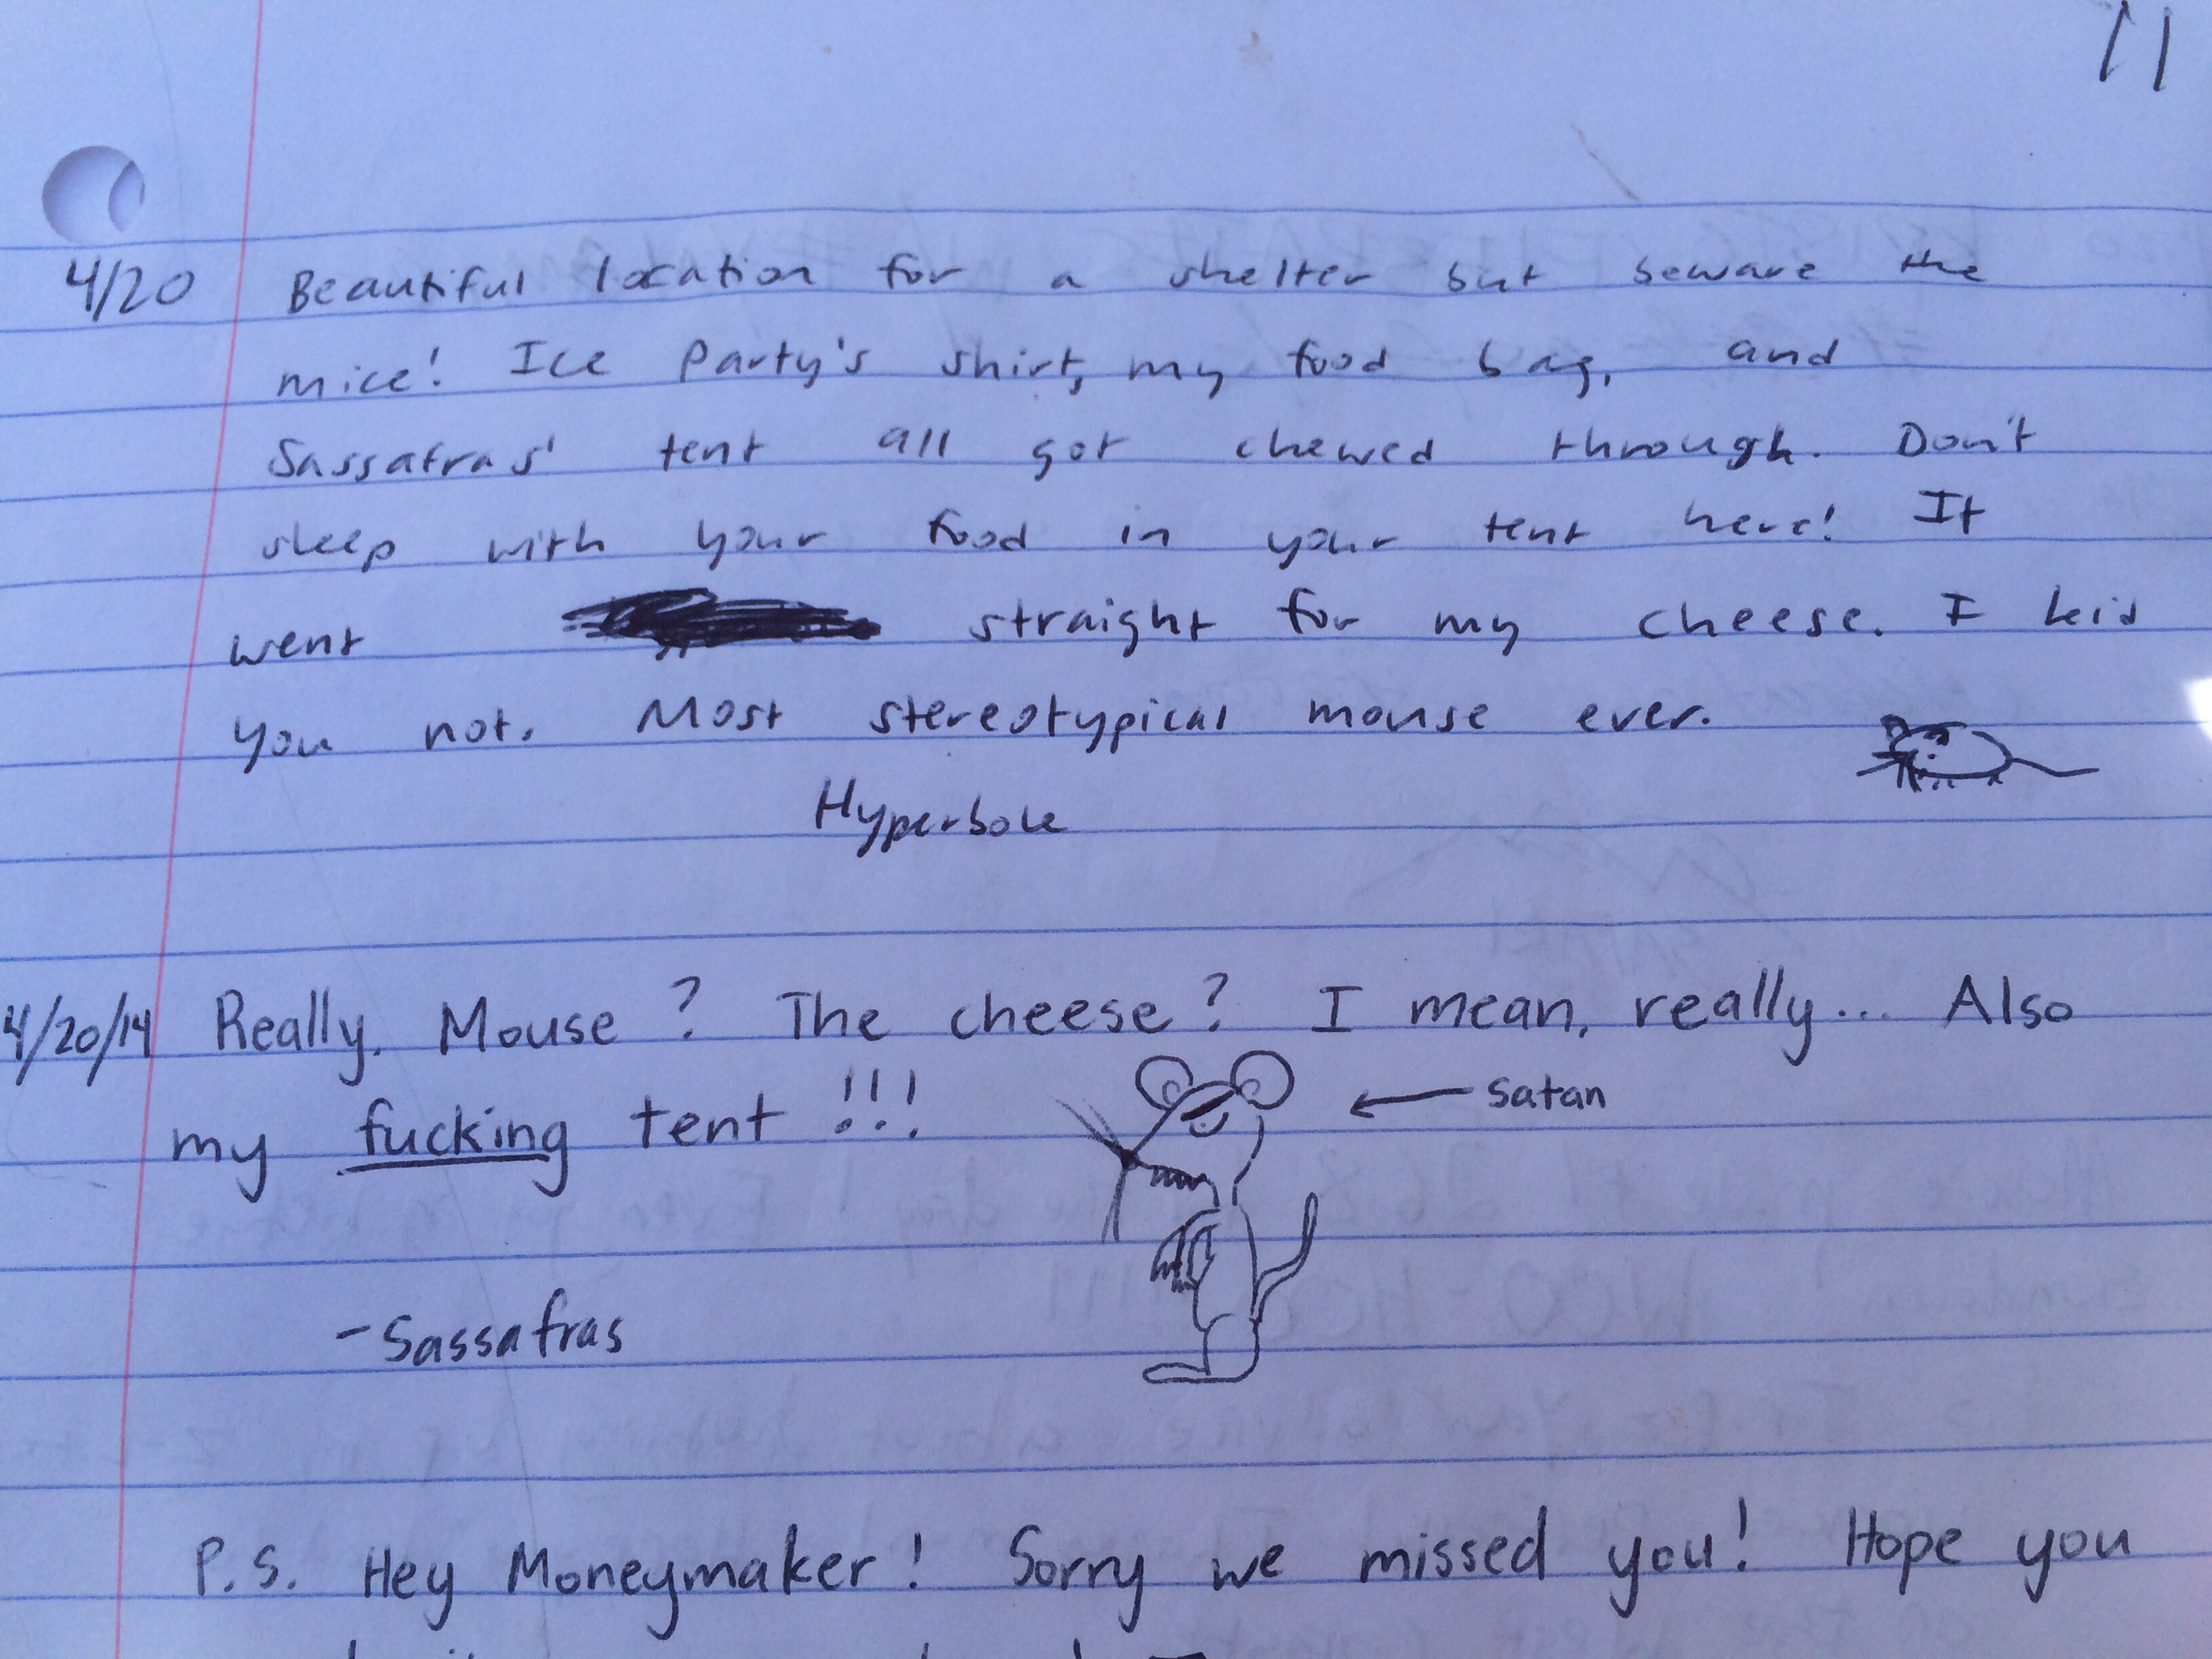 11
4/20 Beautiful location for a shelter but beware the
mice! Ice Party's shirt, my food bag, and
Sassafras' tent all got chewed through. Don't
sleep with your food in your tent here! It
went straight for my cheese. I kid
you not. Most stereotypical mouse ever.
Hyperbole
4/20/14 Really, Mouse? The cheese? I mean, really... Also
my fucking tent !!!
← Satan
- Sassafras
P.S. Hey Moneymaker! Sorry we missed you! Hope you